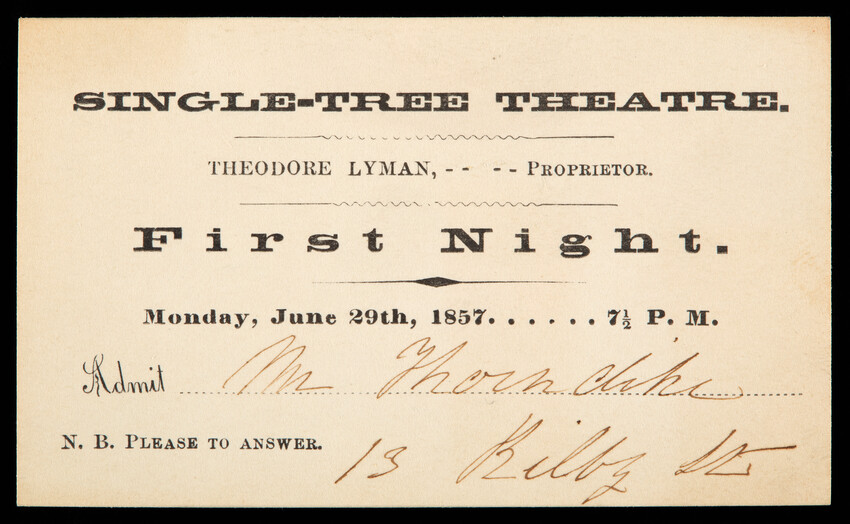 SINGLE-TREE THEATRE.
THEODORE LYMAN, - - - - PROPRIETOR.
First Night.
Monday, June 29th, 1857. . . . . . 7½ P. M.
Admit Mr Thorndike
N. B. PLEASE TO ANSWER.
13 Kilby St